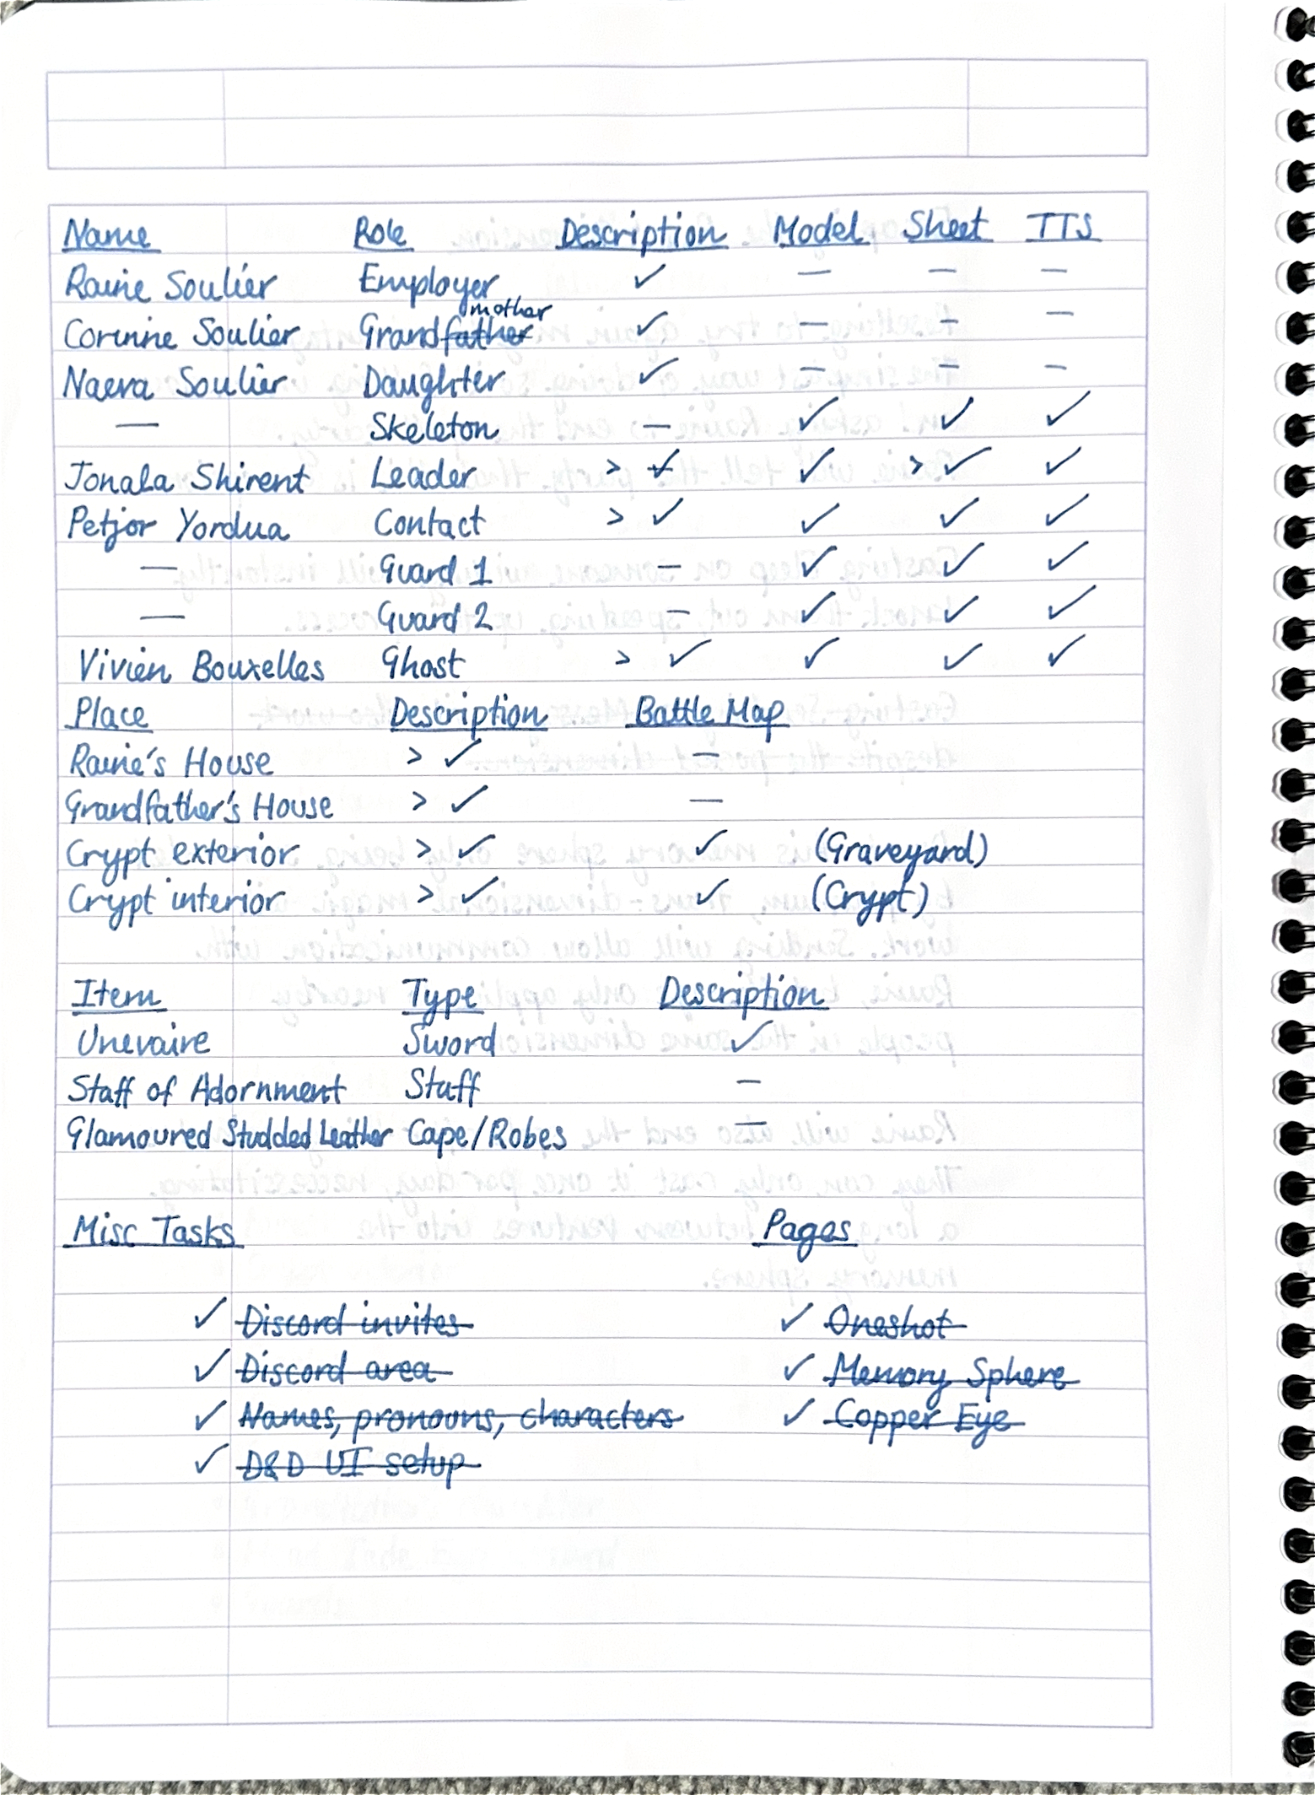 Name Role Description Model Sheet TTS
Raine Soulier Employer ✓ — — —
mother
Corinne Soulier Grandfather ✓ — — —
Naeva Soulier Daughter ✓ — — —
— Skeleton — ✓ ✓ ✓
Jonala Shirent Leader > ✓ ✓ > ✓ ✓
Petjor Yordua Contact > ✓ ✓ ✓ ✓
— Guard 1 — ✓ ✓ ✓
— Guard 2 — ✓ ✓ ✓
Vivien Bouxelles Ghost > ✓ ✓ ✓ ✓
Place Description Battle Map
Raine's House > ✓ —
Grandfather's House > ✓ —
Crypt exterior > ✓ ✓ (Graveyard)
Crypt interior > ✓ ✓ (Crypt)
Item Type Description
Unevaire Sword ✓
Staff of Adornment Staff —
Glamoured Studded Leather Cape/Robes —
Misc Tasks Pages
✓ Discord invites ✓ Oneshot
✓ Discord area ✓ Memory Sphere
✓ Names, pronouns, characters ✓ Copper Eye
✓ D&D UI setup